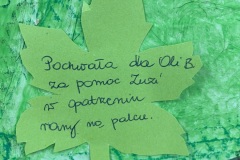 Pochwała dla Oli B.
za pomoc Zuzi
w opatrzeniu
rany na palcu.